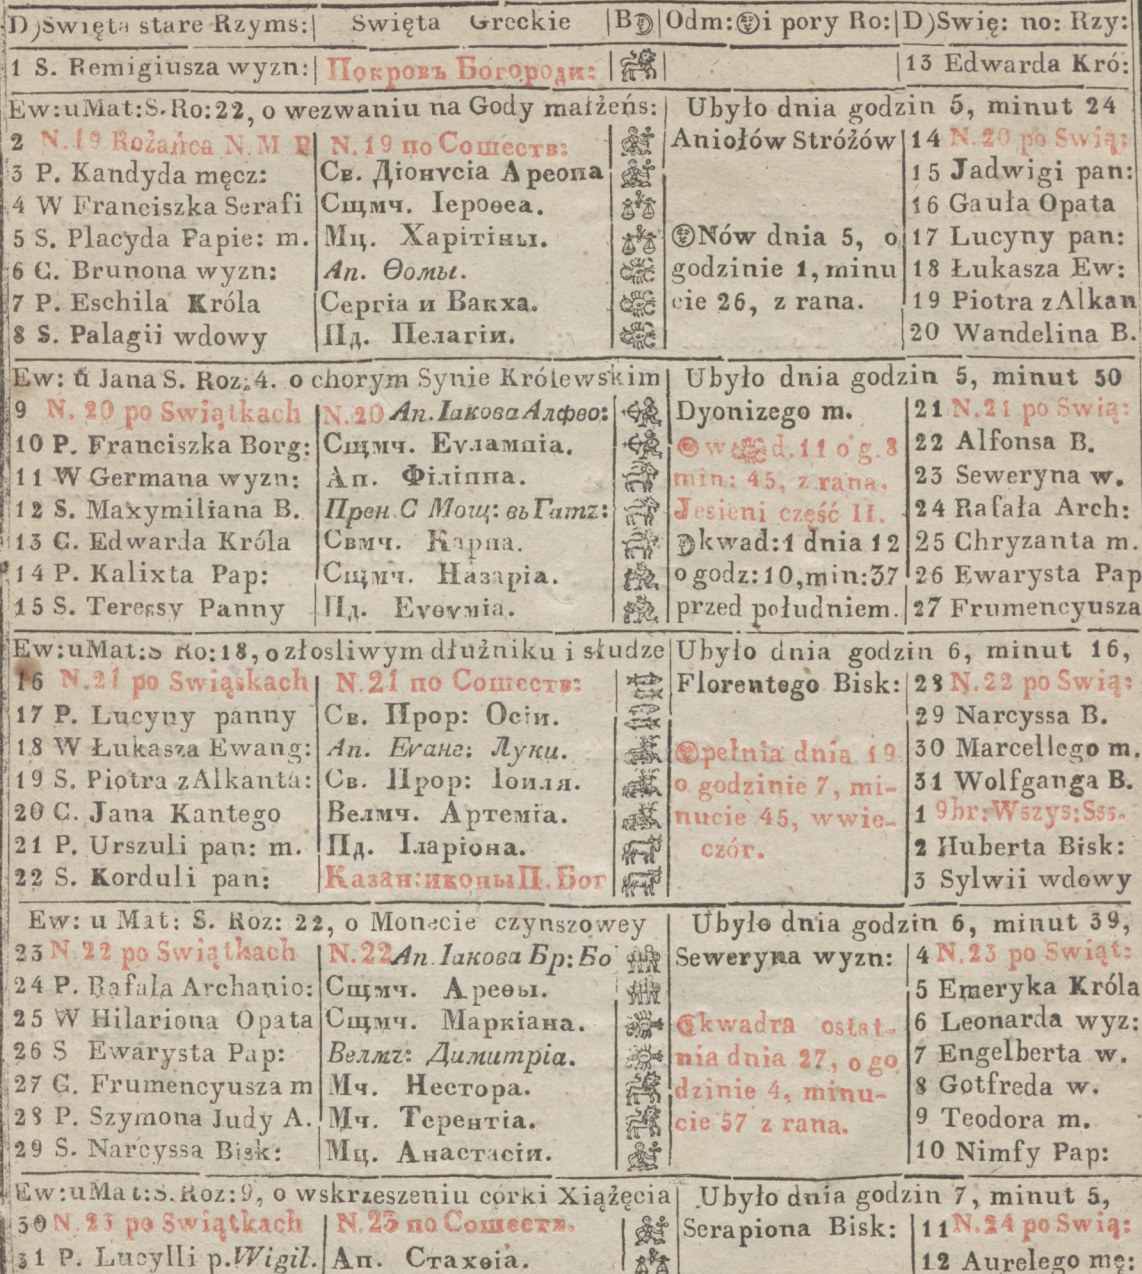 D)Swięta stare Rzyms: Swięta Greckie B Odm: i pory Ro: D)Swię: no: Rzy:
1 S. Remigiusza wyzn: Покровъ Богороди: 13 Edwarda Kró:
Ew:uMat:S.Ro:22, o wezwaniu na Gody małżeńs: Ubyło dnia godzin 5, minut 24
2 N.19 Rożańca N.M.P N.19 по Сошеств: Aniołów Stróżów 14 N.20 po Swią:
3 P. Kandyda męcz: Св. Діонусіа Ареопа 15 Jadwigi pan:
4 W Franciszka Serafi Сщмч. Іероѳеа. 16 Gauła Opata
5 S. Placyda Papie: m. Мц. Харітіны. Nów dnia 5, o 17 Lucyny pan:
6 C. Brunona wyzn: Ап. Ѳомы. godzinie 1, minu 18 Łukasza Ew:
7 P. Eschila Króla Сергіа и Вакха. cie 26, z rana. 19 Piotra z Alkan
8 S. Palagii wdowy Пд. Пелагіи. 20 Wandelina B.
Ew: u Jana S. Roz:4. o chorym Synie Królewskim Ubyło dnia godzin 5, minut 50
9 N. 20 po Swiątkach N.20 Ап.Іакова Алфео: Dyonizego m. 21 N.21 po Swią:
10 P. Franciszka Borg: Сщмч. Еѵлампіа. w d.11 o g.8 22 Alfonsa B.
11 W Germana wyzn: Ап. Філіппа. min: 45, z rana. 23 Seweryna w.
12 S. Maxymiliana B. Прен.С Мощ: вь Гатz: Jesieni część II. 24 Rafała Arch:
13 C. Edwarda Króla Свмч. Карпа. kwad:1 dnia 12 25 Chryzanta m.
14 P. Kalixta Pap: Сщмч. Назаріа. o godz:10,min:37 26 Ewarysta Pap
15 S. Teressy Panny Пд. Еѵѳѵміа. przed południem. 27 Frumencyusza
Ew:uMat:S Ro:18, o złosliwym dłużniku i słudze Ubyło dnia godzin 6, minut 16,
16 N.21 po Swiąskach N.21 по Сошеств: Florentego Bisk: 28 N.22 po Swią:
17 P. Lucyny panny Св. Прор: Осіи. 29 Narcyssa B.
18 W Łukasza Ewang: Ап. Еганг: Луки. pełnia dnia 19 30 Marcellego m.
19 S. Piotra z Alkanta: Св. Прор: Іоиля. o godzinie 7, mi- 31 Wolfganga B.
20 C. Jana Kantego Велмч. Артеміа. nucie 45, wwie- 1 9br:Wszys:Sss.
21 P. Urszuli pan: m. Пд. Іларіона. czór. 2 Huberta Bisk:
22 S. Korduli pan: Казан:иконы П.Бог 3 Sylwii wdowy
Ew: u Mat: S. Roz: 22, o Monecie czynszowey Ubyło dnia godzin 6, minut 39,
23 N.22 po Swiątkach N.22 Ап.Іакова Бр:Бо Seweryna wyzn: 4 N.23 po Swiąt:
24 P. Rafała Archanio: Сщмч. Ареѳы. 5 Emeryka Króla
25 W Hilariona Opata Сщмч. Маркіана. kwadra ostat- 6 Leonarda wyz:
26 S Ewarysta Pap: Велмz: Димитріа. nia dnia 27, o go 7 Engelberta w.
27 C. Frumencyusza m Мч. Нестора. dzinie 4, minu- 8 Gotfreda w.
28 P. Szymona Judy A. Мч. Терентіа. cie 57 z rana. 9 Teodora m.
29 S. Narcyssa Bisk: Мц. Анастасіи. 10 Nimfy Pap:
Ew:uMat:S.Roz:9, o wskrzeszeniu corki Xiążęcia Ubyło dnia godzin 7, minut 5,
30 N.23 po Swiątkach N.23 по Сошеств. Serapiona Bisk: 11 N.24 po Swią:
31 P. Lucylli p. Wigil. Ап. Стахѳіа. 12 Aurelego mę: